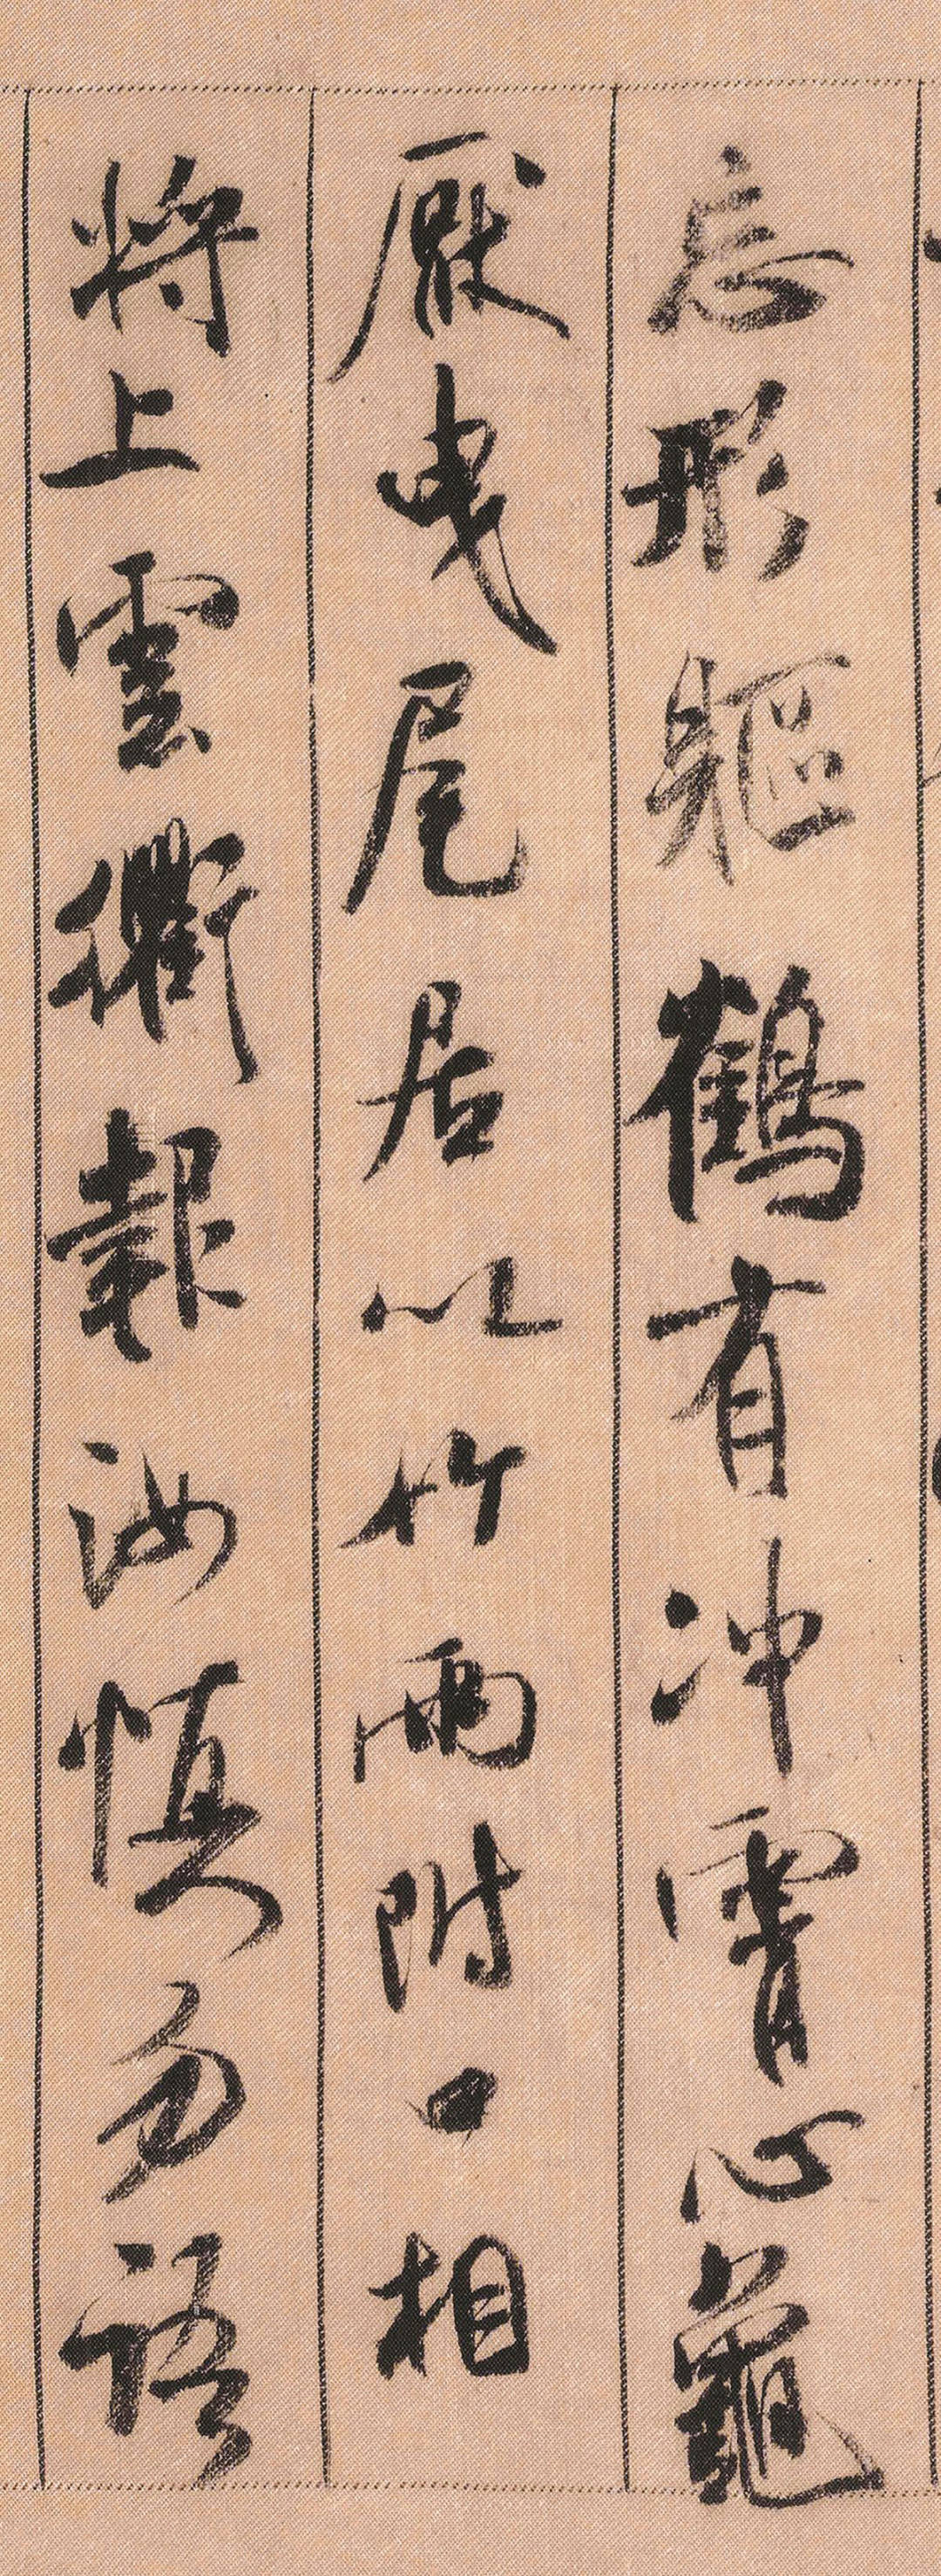 忘形軀鶴有沖霄心龜
厭曳尾居以竹兩附口相
將上雲衢報汝慎勿語